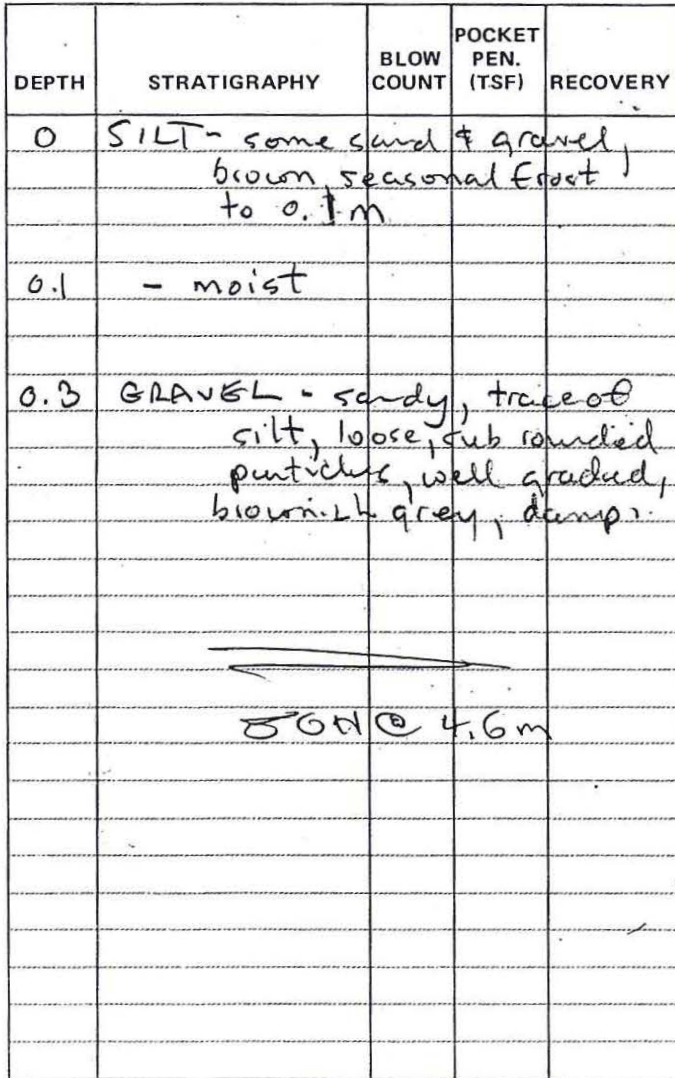 DEPTH STRATIGRAPHY BLOW COUNT POCKET PEN. (TSF) RECOVERY
0 SILT - some sand & gravel,
brown, seasonal frost
to 0.1 m
0.1 - moist
0.3 GRAVEL - sandy, trace of
silt, loose, sub rounded
particles, well graded,
brownish grey, damp.
EOH @ 4.6 m